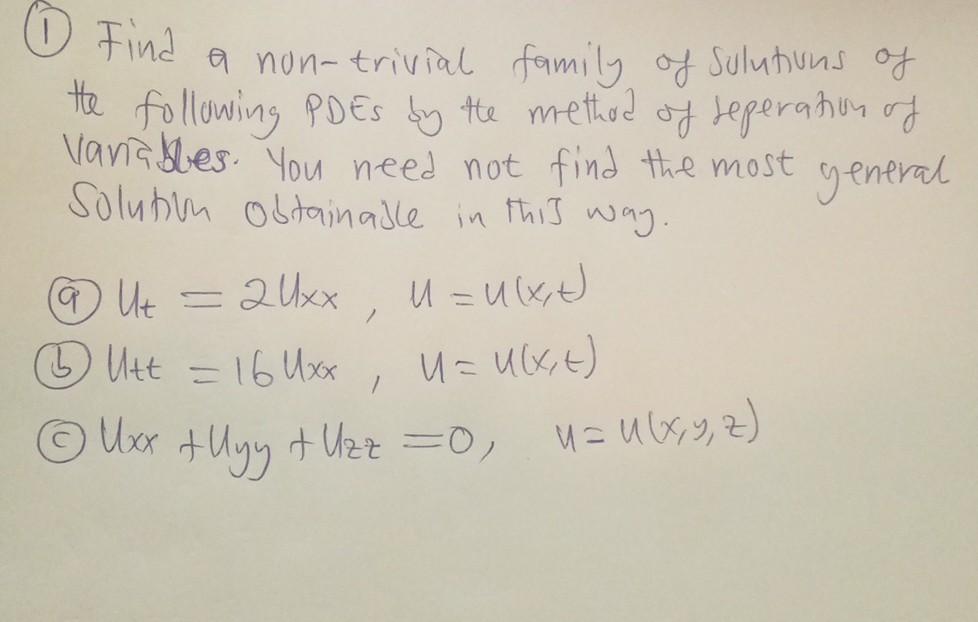 ① Find a non-trivial family of Solutions of
the following PDEs by the method of seperation of
Variables. You need not find the most general
Solution obtainable in this way.
ⓐ Ut = 2Uxx , U = U(x,t)
ⓑ Utt = 16 Uxx , U = U(x,t)
ⓒ Uxx + Uyy + Uzz = 0, U = U(x,y,z)